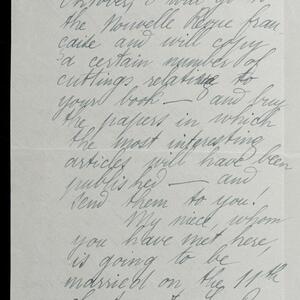 October, I will go to
the Nouvelle Revue fran-
çaise and will copy
a certain number of
cuttings relating to
yours book — and buy
the papers in which
the most interesting
articles will have been
published — and
send them to you!
My niece, whom
you have met here,
is going to be
married on the 11th